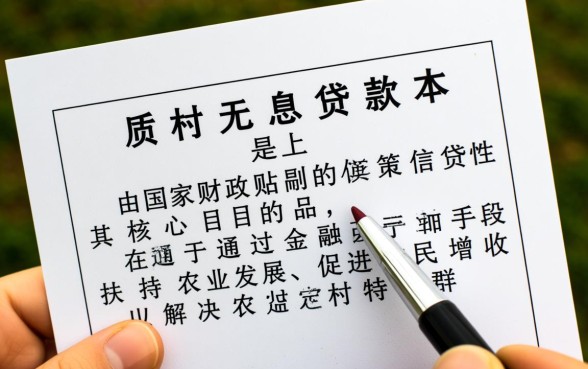 质村无息贷款本
是上
由国家财政贴的策信贷性
其核心目目的品，
在于通过金融手段
扶持农业发展、促进民增收
解决农村特群